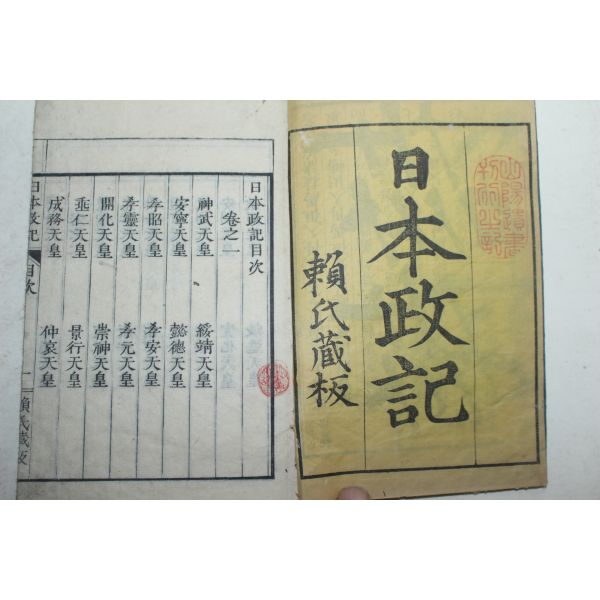 日本政記
賴氏藏板
日本政記目次
卷之一
神武天皇 綏靖天皇
安寧天皇 懿德天皇
孝昭天皇 孝安天皇
孝靈天皇 孝元天皇
開化天皇 崇神天皇
垂仁天皇 景行天皇
成務天皇 仲哀天皇
日本政記 目次 一 賴氏藏板